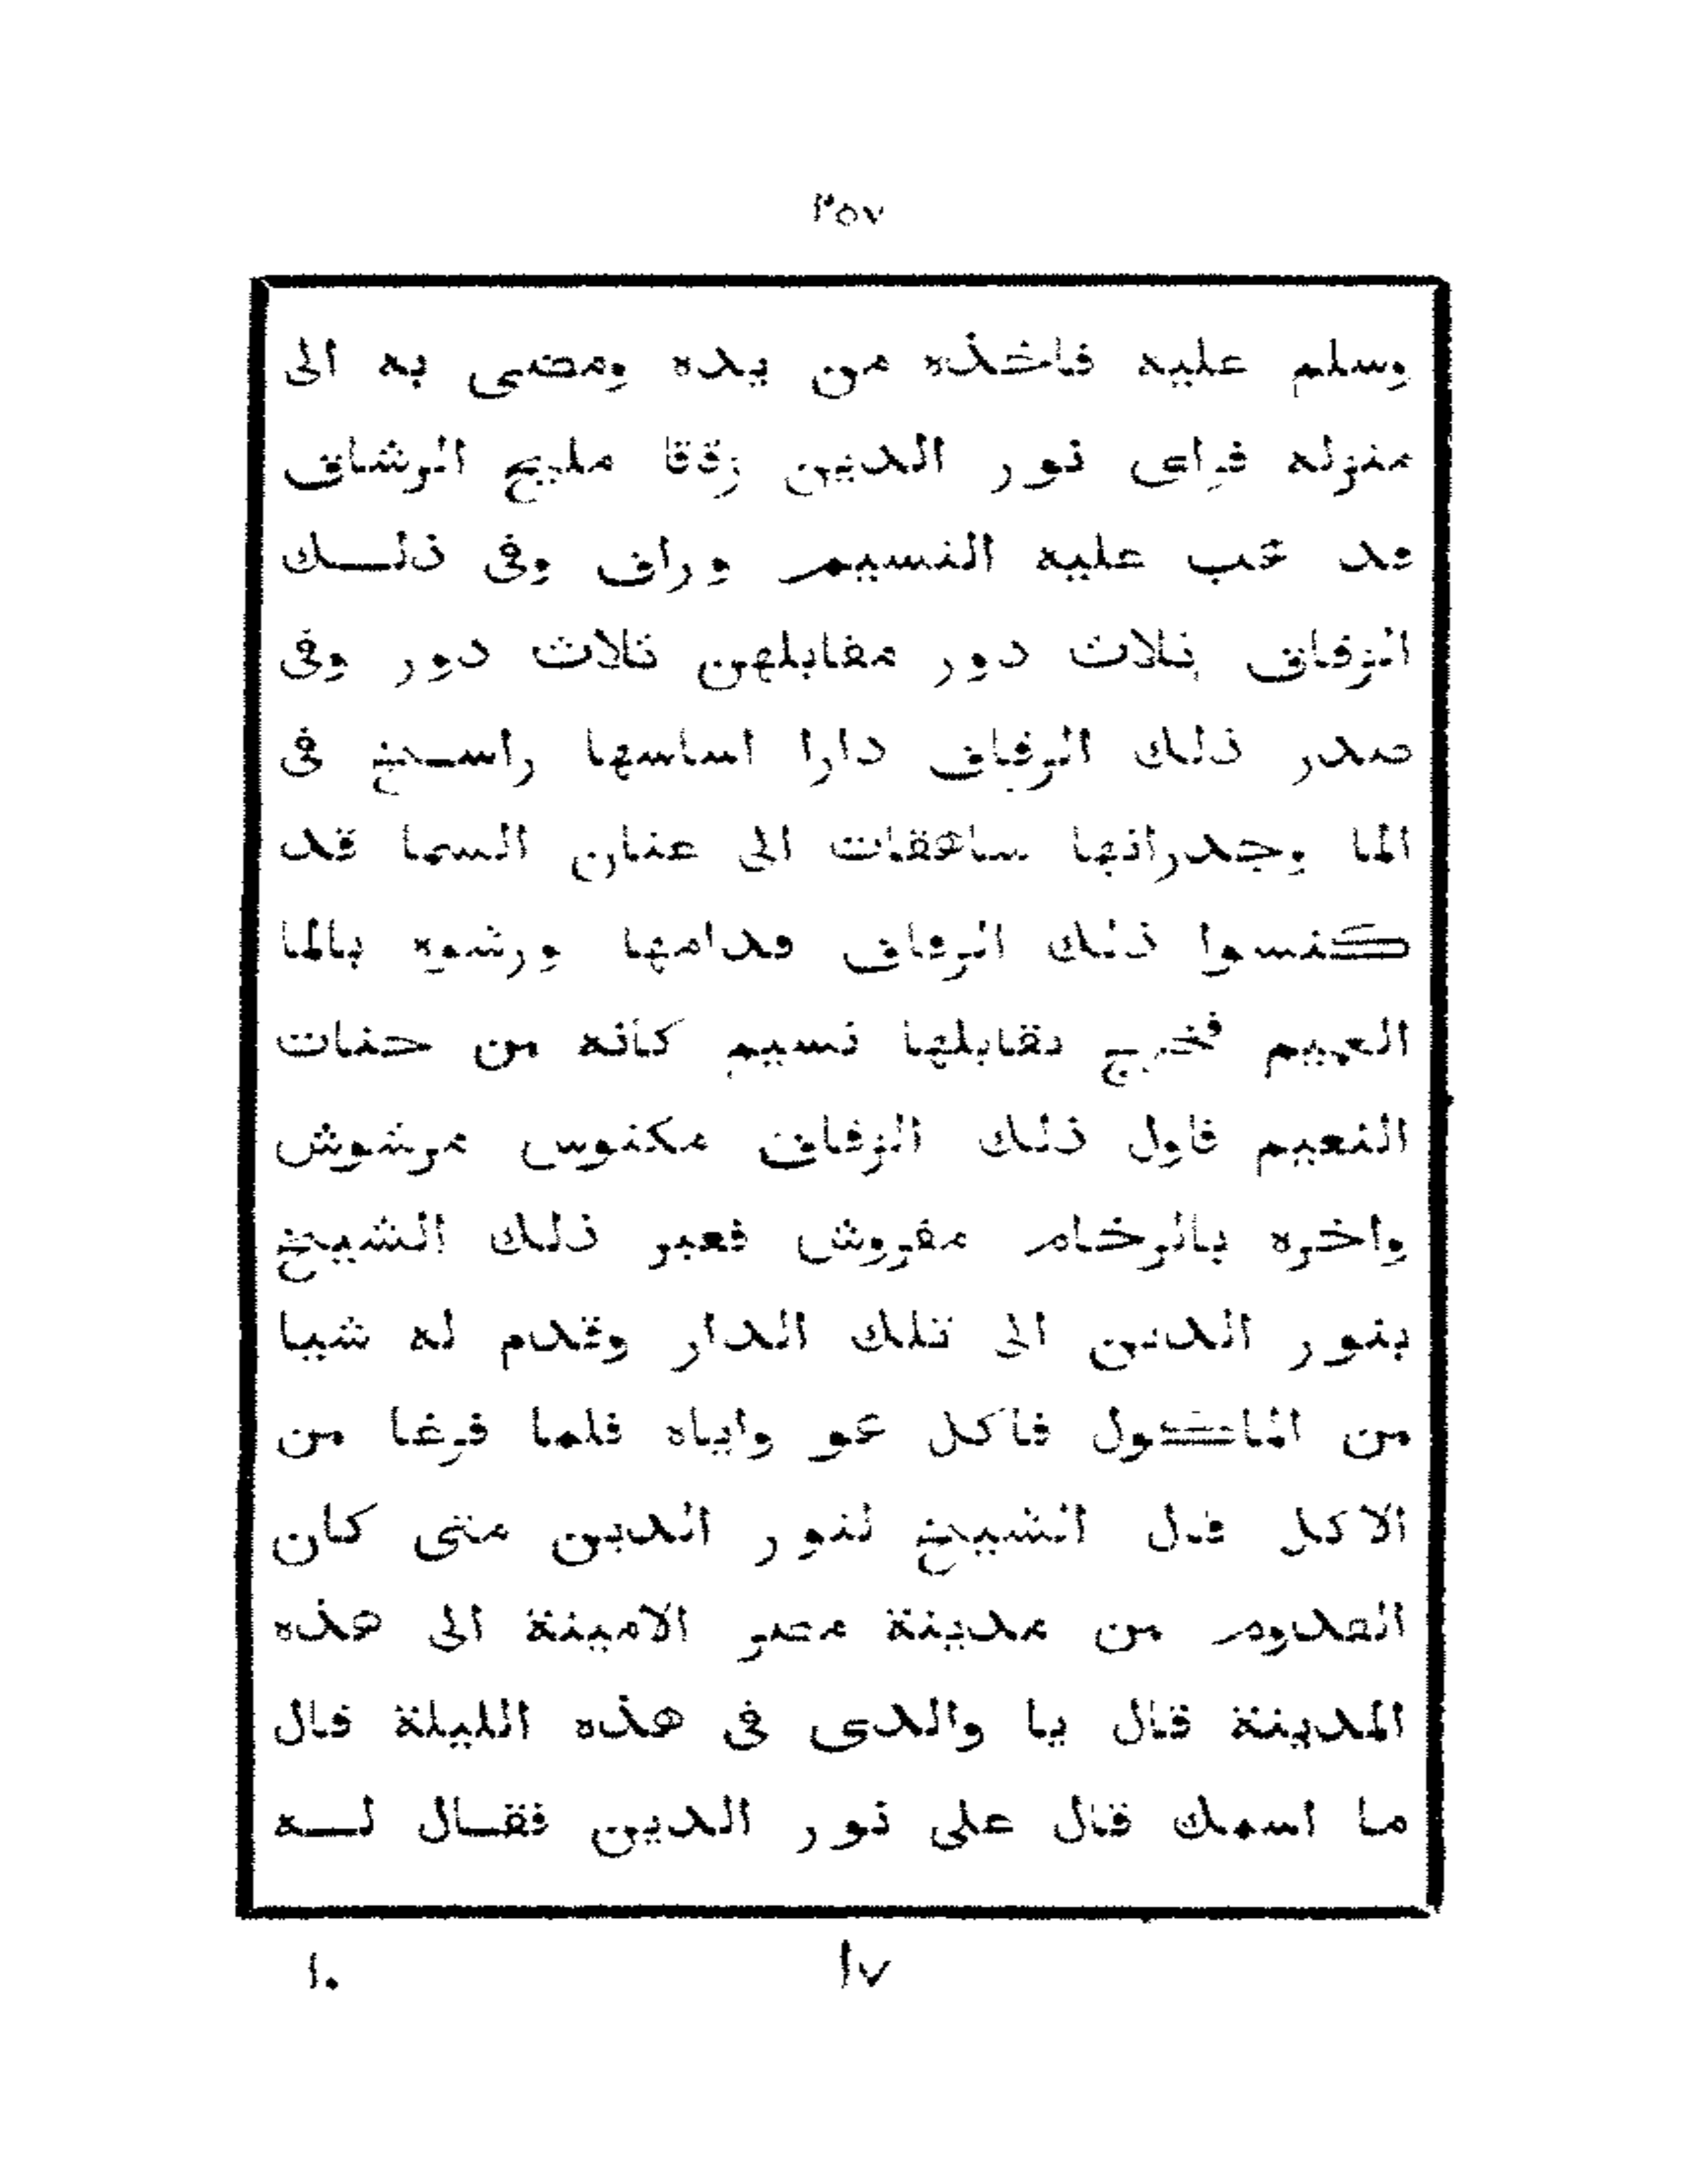 ٢٥٧
وسلم عليه فاخذه من يده ومضى به الى
منزله فراى نور الدين زقاقا مليح الرشاق
قد هب عليه النسيم وراق وفى ذلك
الزقاق ثلاث دور مقابلهن ثلاث دور وفى
صدر ذلك الزقاق دارا اساسها راسخ فى
الما وجدرانها ساهقات الى عنان السما قد
كنسوا ذلك الزقاق قدامها ورشوه بالما
العميم فخرج يقابلها نسيم كأنه من جنات
النعيم فاول ذلك الزقاق مكنوس مرشوش
واخره بالرخام مفروش فعبر ذلك الشيخ
بنور الدين الى تلك الدار وقدم له شيا
من الماكول فاكل هو واياه فلما فرغا من
الاكل قال الشيخ لنور الدين متى كان
القدوم من مدينة مصر الامينة الى هذه
المدينة قال يا والدى فى هذه الليلة قال
ما اسمك قال على نور الدين فقال له
١٧
١٠